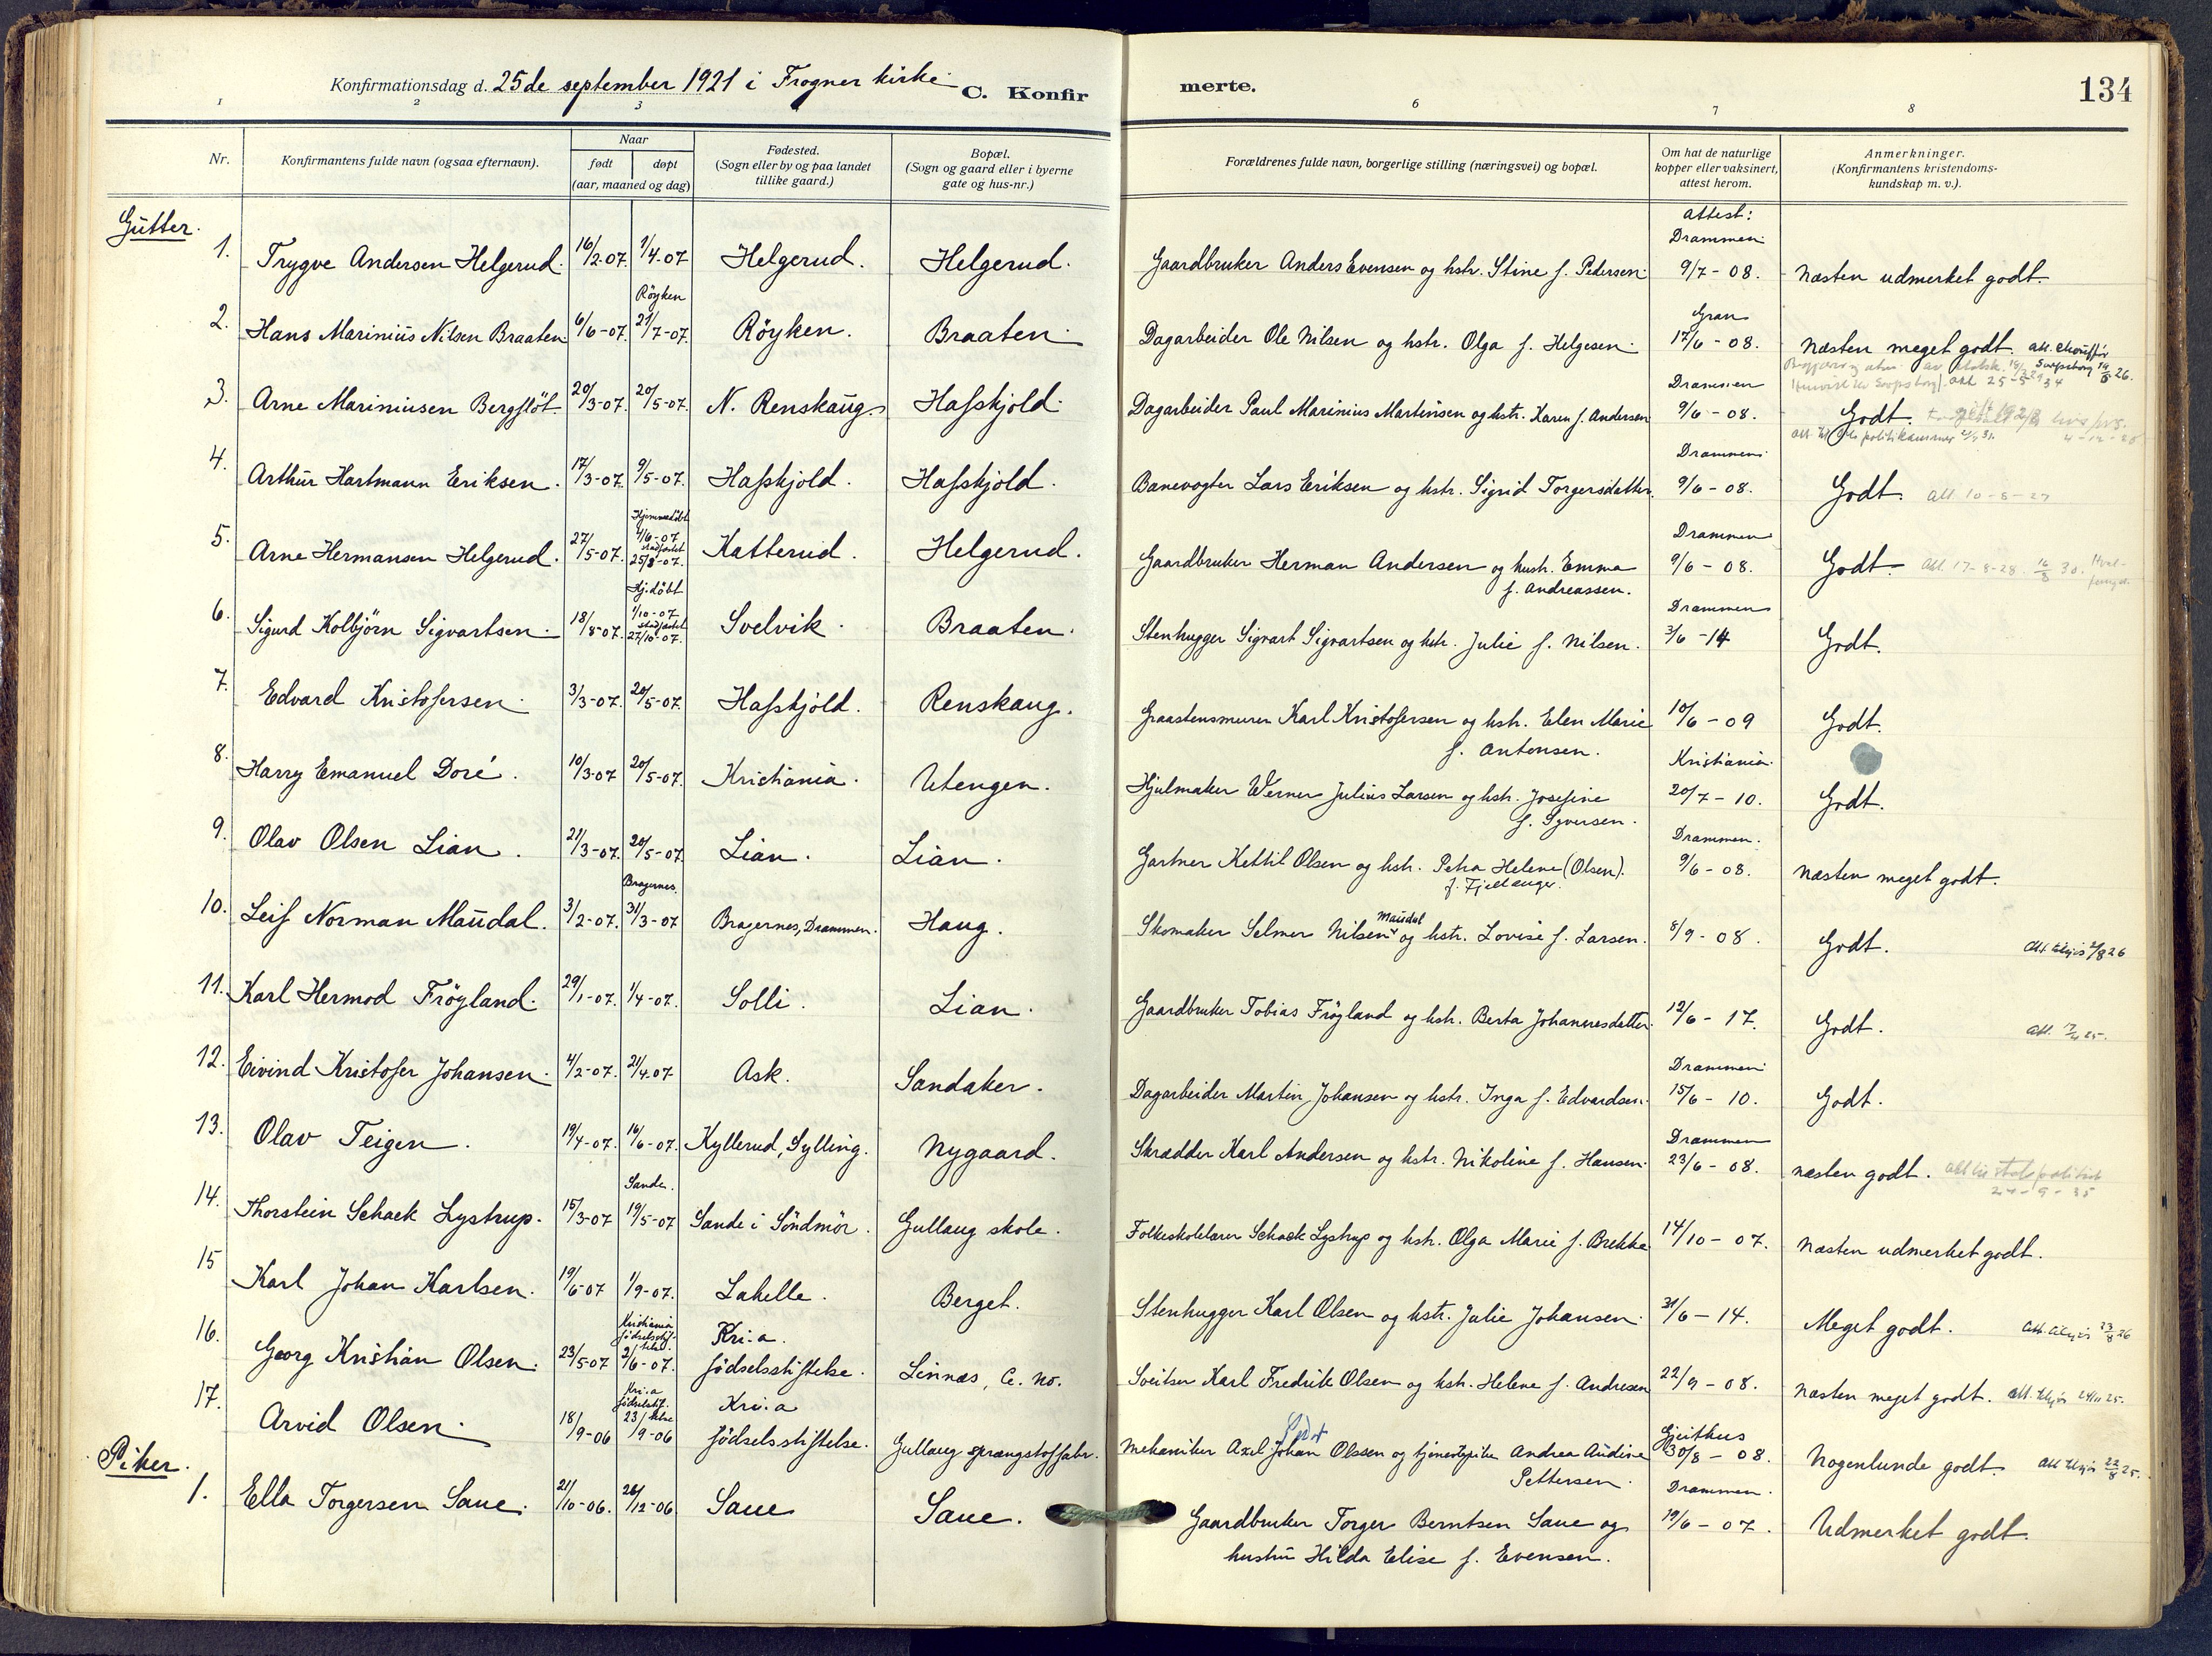 Konfirmationsdag d. 25de september 1921 i Frogner kirke.
C. Konfirmerte.
134
1 2 3 6 7 8
Nr.
Konfirmantens fulde navn (ogsaa efternavn).
Naar
født døpt
(aar, maaned og dag)
Fødested.
(Sogn eller by og paa landet
tillike gaard.)
Bopæl.
(Sogn og gaard eller i byerne
gate og hus-nr.)
Forældrenes fulde navn, borgerlige stilling (næringsvei) og bopæl.
Om hat de naturlige
kopper eller vaksinert,
attest herom.
Anmerkninger.
(Konfirmantens kristendoms-
kundskap m. v.).
Gutter.
attest:
Drammen
1. Trygve Andersen Helgerud. 16/2-07. 1/4-07 Helgerud. Helgerud. Gaardbruker Anders Evensen og hstr. Stine f. Pedersen. 9/7-08. Næsten udmerket godt.
Röyken
Gran
2. Hans Marinius Nilsen Braaten. 6/6-07. 21/7-07. Röyken. Braaten. Dagarbeider Ole Nilsen og hstr. Olga f. Helgesen. 17/6-08. Næsten meget godt.
Drammen
3. Arne Mariniusen Bergflöt 20/3-07. 20/5-07. N. Renskaug. Hafskjold. Dagarbeider Paul Marinius Martinsen og hstr. Karen f. Andersen 9/6-08. Godt.
Drammen
4. Arthur Hartmann Eriksen. 17/3-07. 9/5-07. Hafskjold. Hafskjold. Banevogter Lars Eriksen og hstr. Sigrid Torgersdatter. 9/6-08. Godt. att 10-8-27
Hjemmedöbt
Drammen
5. Arne Hermansen Helgerud. 27/5-07. 1/6-07 stadfæstet 25/8-07. Katterud. Helgerud. Gaardbruker Herman Andersen og hustr. Emma 9/6-08. Godt. Att. 17-8-28
f. Andreassen.
Hj.döbt
Drammen
6. Sigurd Kolbjörn Sigvartsen. 18/8-07. 1/10-07 stadfæstet 27/10-07. Svelvik. Braaten. Stenhugger Sigvart Sigvartsen og hstr. Julie f. Nilsen. 3/6-14 Godt.
7. Edvard Kristofersen. 3/3-07. 20/5-07. Hafskjöld. Renskaug. Graastensmurer Karl Kristofersen og hstr. Elen Marie 10/6-09 Godt.
f. Antonsen.
Kristiania.
8. Harry Emanuel Doré. 10/3-07 20/5-07. Kristiania. Utengen. Hjulmaker Werner Julius Larsen og hstr. Josefine 20/7-10. Godt.
f. Syversen.
Drammen.
9. Olav Olsen Lian. 21/3-07. 20/5-07. Lian. Lian. Gartner Kettil Olsen og hstr. Petra Helene (Olsen). 9/6-08. Næsten meget godt.
Bragernes.
10. Leif Norman Maudal. 3/2-07. 31/3-07 Bragernes, Drammen. Haug. Skomaker Selmer Nilsen Maudal og hstr. Lovise f. Larsen. 8/9-08. Godt.
11. Karl Hermod Fröyland. 29/1-07. 1/4-07. Solli. Lian. Gaardbruker Tobias Fröyland og hstr. Berta Johannesdatter. 12/6-17. Godt.
Drammen
12. Eivind Kristofer Johansen. 4/2-07. 21/4.07 Ask. Sandaker. Dagarbeider Martin Johansen og hstr. Inga f. Edvardsen. 15/6-10. Godt.
Drammen
13. Olav Teigen. 19/4-07. 16/6-07. Kyllerud, Sylling. Nygaard. Skrædder Karl Andersen og hstr. Nikoline f. Hansen. 23/6-08. næsten godt.
Sande.
14. Thorstein Schack Lystrup. 15/3-07 19/5-07 Sande i Söndmör. Gullaug skole. Folkeskolelærer Schack Lystrup og hstr. Olga Marie f. Brekke 14/10-07. Næsten udmerket godt.
15 Karl Johan Karlsen. 19/6-07 1/9-07. Lahelle. Berget. Stenhugger Karl Olsen og hstr. Julie Johansen. 31/6-14. Meget godt.
Kristiania
16. Georg Kristian Olsen. 23/5-07 2/6-07. Kri.a. födselsstiftelse. Linnæs, Sveitser Karl Fredrik Olsen og hstr. Helene f. Andresen 22/9-08. Næsten meget godt.
Kri.a
Gjeithus
17. Arvid Olsen. 18/9-06 23/9-06 Kri.a födselsstiftelse. Gullaug sprængstoffabr. Mekaniker Axel Johan Olssen og tjenestepike Andrea Audine 30/8-08. Nogenlunde godt.
Pettersen.
Piker.
Drammen.
1. Ella Torgersen Saue. 21/10-06. 26/12-06 Saue Saue. Gaardbruker Torger Berntsen Saue og 19/6-07. Udmerket godt.
hustru Hilda Elise f. Evensen.